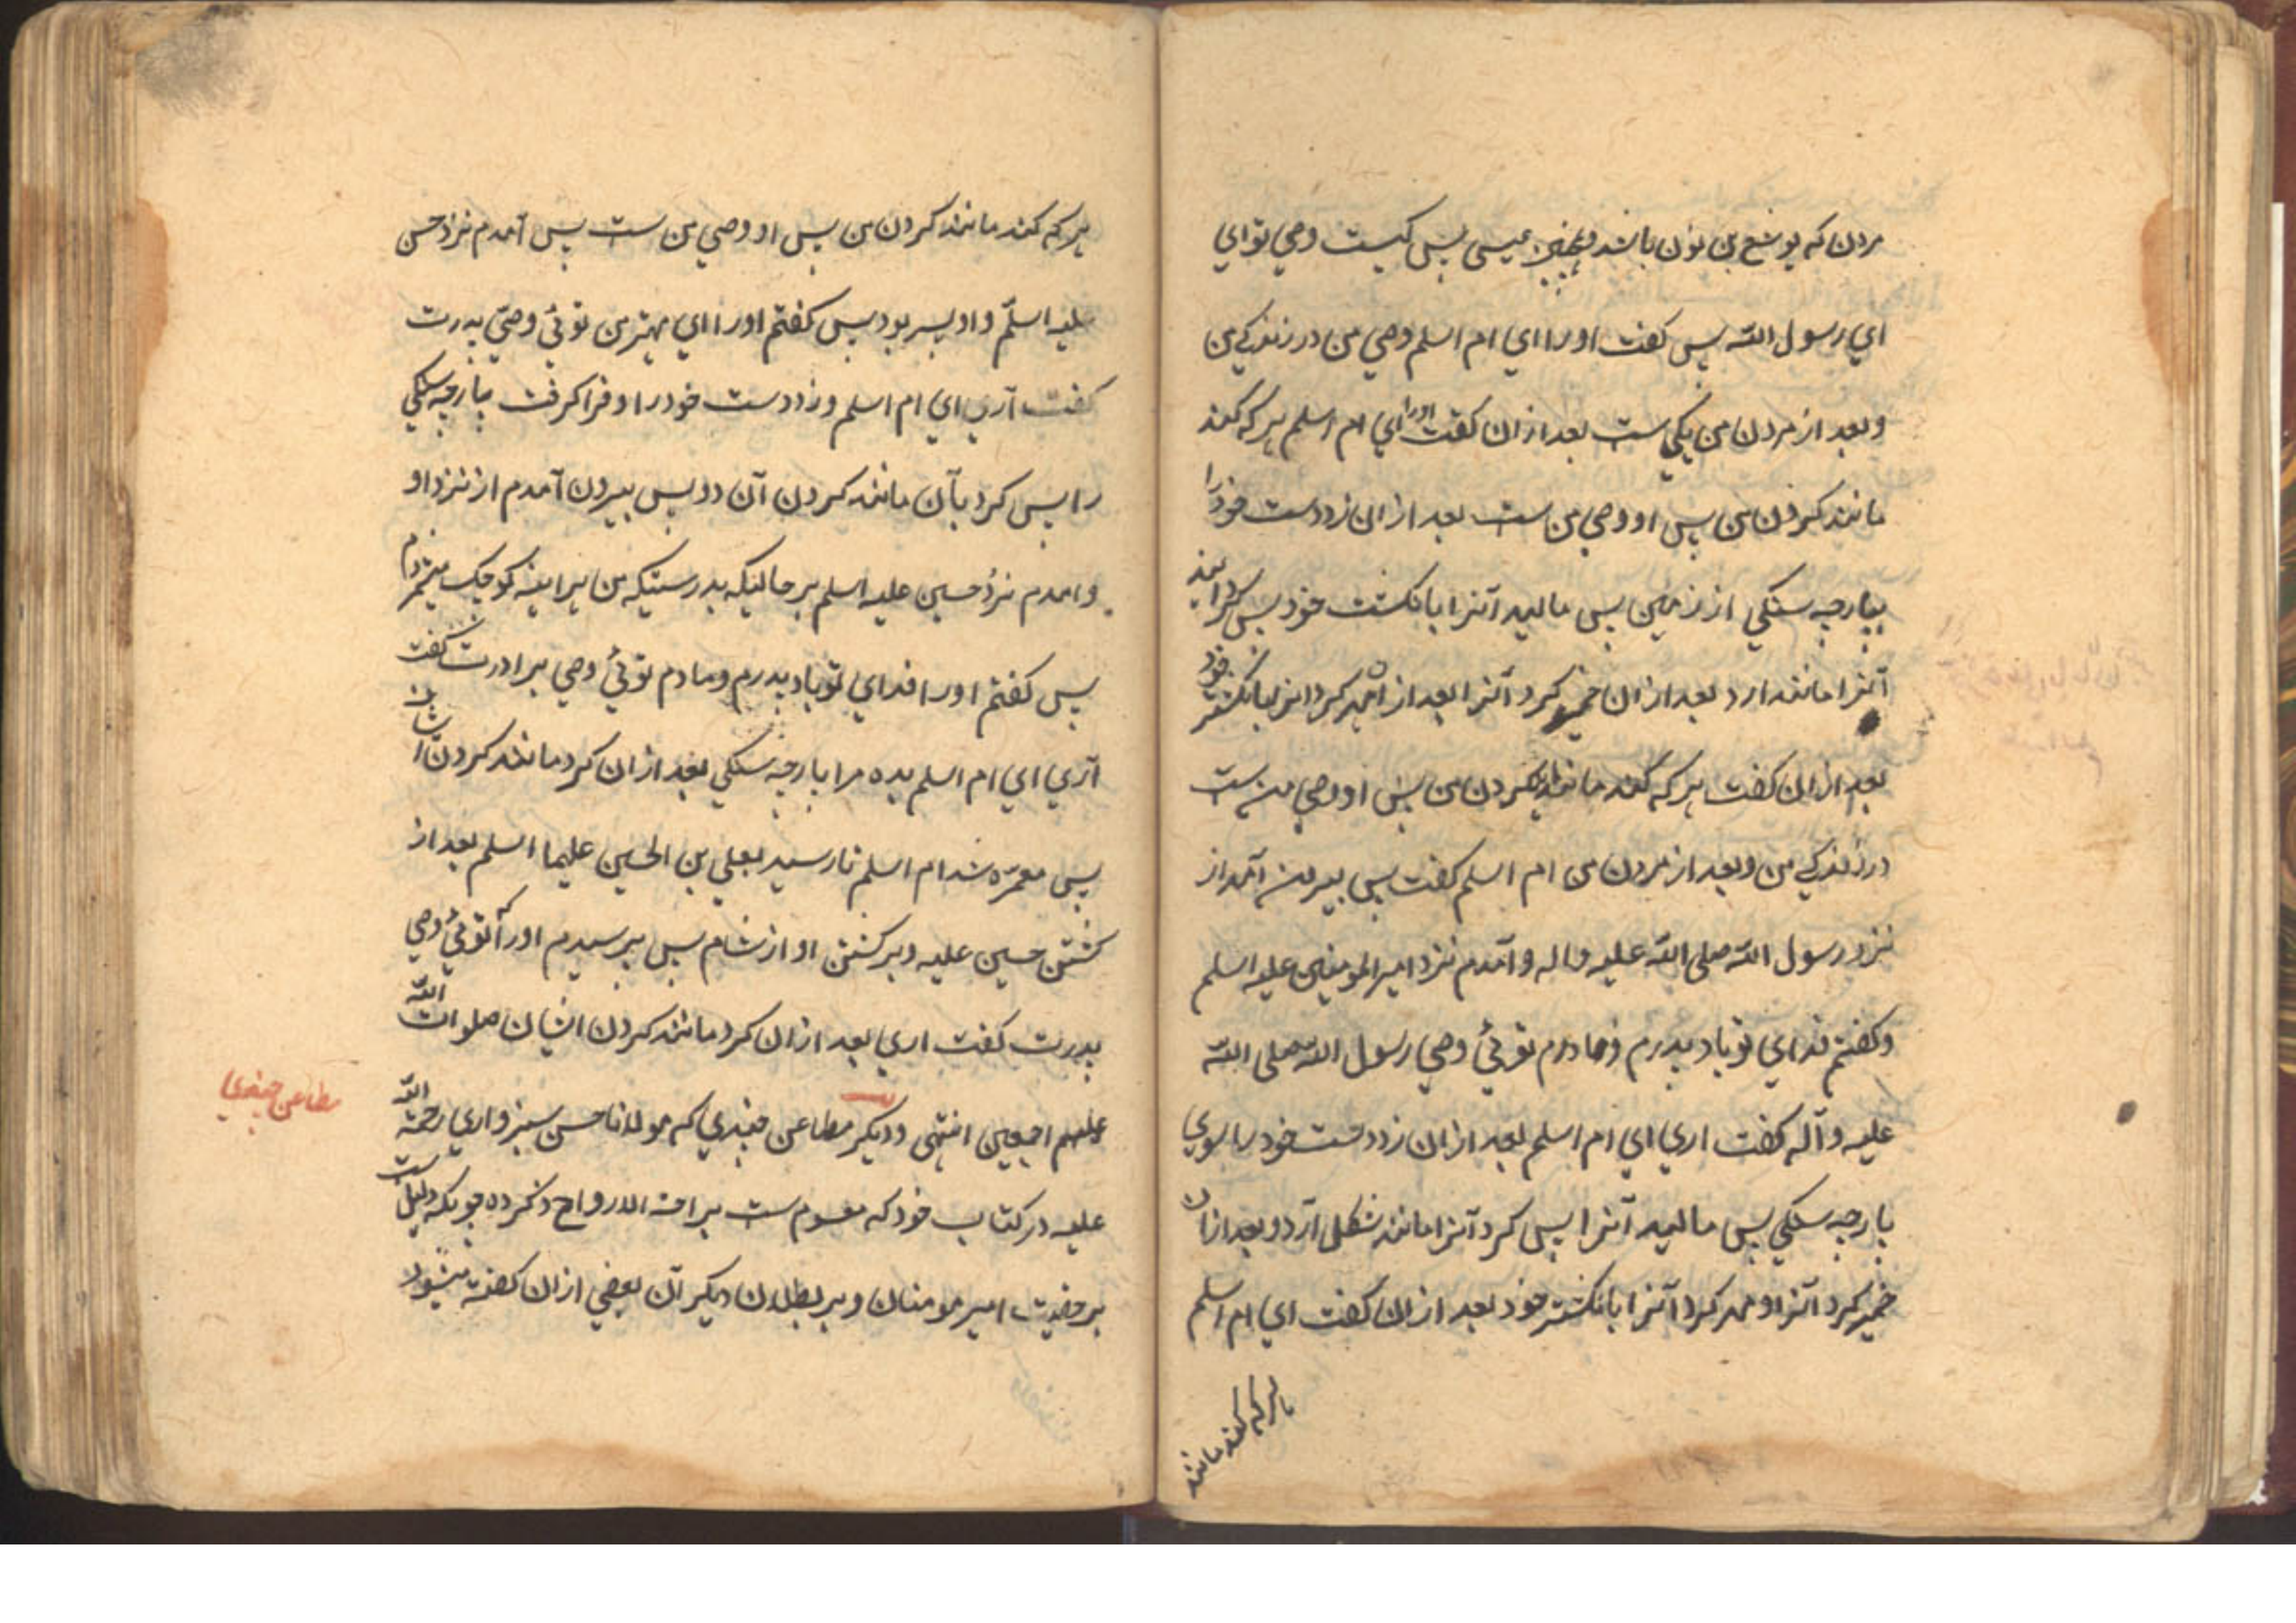 مردن که یوشع بن نون باشد و همچنین عیسی پس کیست وصي تو اي
اي رسول الله پس کفت اورا اي ام اسلم وصي من در زندکي من
و بعد از مردن من یکي ست بعد ازان کفت اورا اي ام اسلم هر که کند
مانند کردن من پس او وصي من ست بعد ازان زد دست خود را
بپارچه سنکي از زمین پس مالید آنرا بانکشت خود پس کردانید
آنرا مانند ارد بعد ازان خمیر کرد آنرا بعد ازان مهر کرد انرا بانکشتر خود
بعد ازان کفت هر که کند مانند کردن من پس او وصي من ست
در زندکي من و بعد از مردن من ام اسلم کفت پس بیرون آمدم از
نزد رسول الله صلی الله علیه و اله و آمدم نزد امیر المومنین علیه اسلم
و کفتم فداي تو باد پدرم و مادرم توئي وصي رسول الله صلی الله
علیه و آله کفت اري اي ام اسلم بعد ازان زد دست خود را بسوي
پارچه سنکي پس مالید آنرا پس کرد آنرا مانند شکل آرد و بعد ازان
خمیر کرد آنرا و مهر کرد آنرا بانکشتر خود بعد ازان کفت اي ام اسلم
هر که کند مانند
هر که کند مانند کردن من پس او وصي من ست پس آمدم نزد حسن
علیه اسلم و او پسر بود پس کفتم اورا اي مهتر من توئي وصي پدرت
کفت آري اي ام اسلم و زد دست خود را و فرا کرفت پارچه سنکي
را پس کرد بآن مانند کردن آن دو پس بیرون آمدم از نزد او
و امدم نزد حسین علیه اسلم بر حالیکه بدرستیکه من هر اینه کوچک میشمردم
پس کفتم اورا فداي تو باد پدرم و مادرم توئي وصي برادرت کفت
آري اي ام اسلم بده مرا پارچه سنکي بعد ازان کرد مانند کردن ایشان
پس معمره شد ام اسلم تا رسید بعلي بن الحسین علیهما اسلم بعد از
کشتن حسین علیه و برکشتن او از شام پس پرسیدم اورا که آتوئي وصي
پدرت کفت اري بعد ازان کرد مانند کردن ایشان صلوات الله
علیهم اجمعین انتهی و دیکر مطاعن جنیدي که مولانا حسن سبزواري رحمة الله
علیه در کتاب خود که موسوم ست براحة الارواح ذکر کرده چونکه دلیل ست
بر حقیت امیر مومنان و بر بطلان دیکر آن بعضي ازان کفته میشود
مطاعن جنیدي